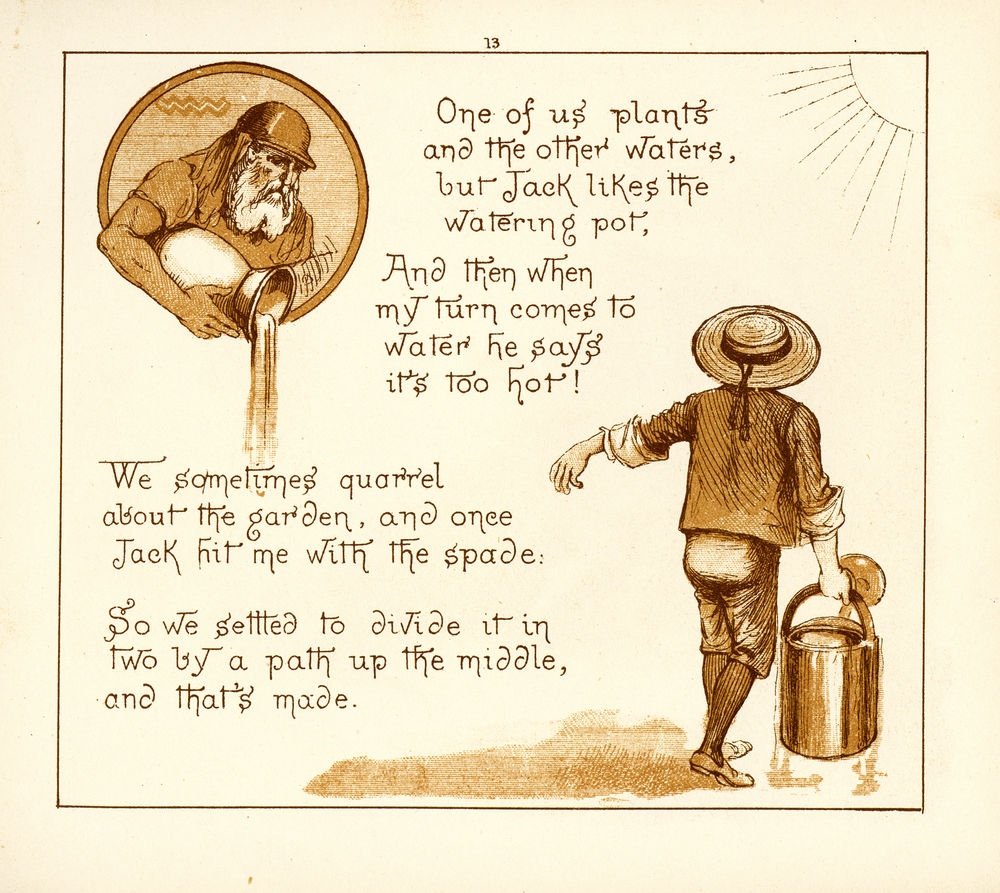 13
One of us plants
and the other waters,
but Jack likes the
watering pot,
And then when
my turn comes to
water he says
it's too hot!
We sometimes quarrel
about the garden, and once
Jack hit me with the spade:
So we settled to divide it in
two by a path up the middle,
and that's made.